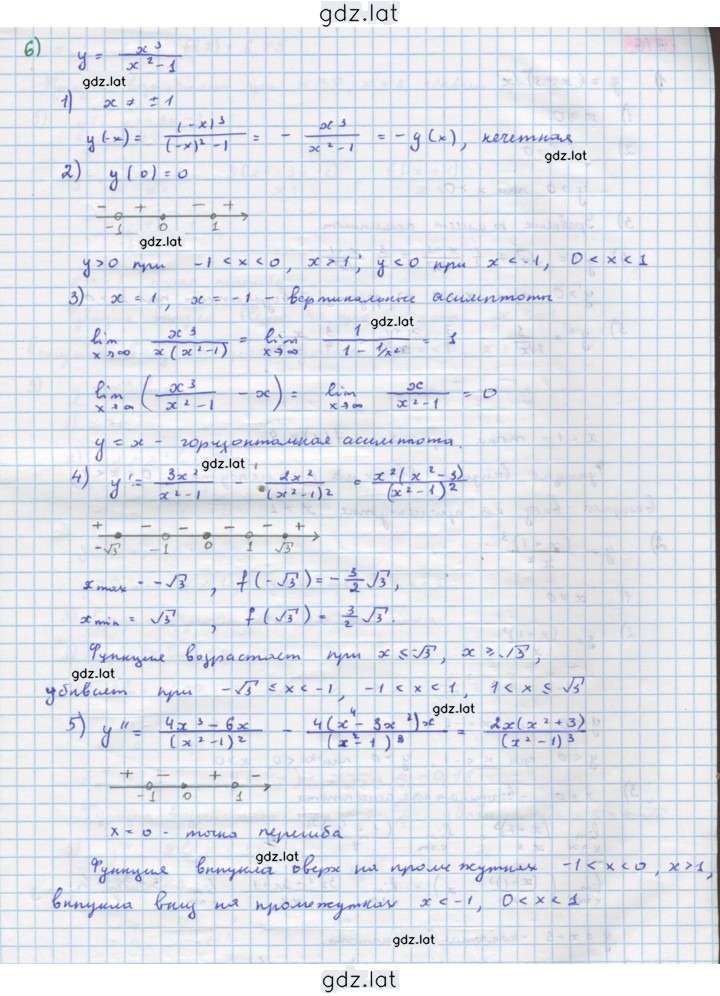 gdz.lat
6) y = x³/(x² - 1)
gdz.lat
1) x ≠ ± 1
y(-x) = (-x)³/((-x)² - 1) = - x³/(x² - 1) = -y(x), нечетная
gdz.lat
2) y(0) = 0
- + - +
-1 0 1
gdz.lat
y>0 при -1 < x < 0, x > 1; y < 0 при x < -1, 0 < x < 1
3) x = 1, x = -1 - вертикальные асимптоты
gdz.lat
lim x→∞ x³/(x(x²-1)) = lim x→∞ 1/(1 - 1/x²) = 1
lim x→∞ (x³/(x²-1) - x) = lim x→∞ x/(x²-1) = 0
y = x - горизонтальная асимптота.
gdz.lat
4) y' = 3x²/(x²-1) - 2x²/(x²-1)² = x²(x²-3)/(x²-1)²
+ - - - - +
-√3 -1 0 1 √3
x max = -√3, f(-√3) = -3/2 √3,
x min = √3, f(√3) = 3/2 √3.
Функция возрастает при x ≤ -√3, x ≥ √3,
gdz.lat
убывает при -√3 ≤ x < -1, -1 < x < 1, 1 < x ≤ √3
gdz.lat
5) y'' = (4x³ - 6x)/(x²-1)² - 4(x⁴ - 3x²)x/(x²-1)³ = 2x(x²+3)/(x²-1)³
+ - + -
-1 0 1
x = 0 - точка перегиба
gdz.lat
Функция выпукла вверх на промежутках -1 < x < 0, x > 1,
выпукла вниз на промежутках x < -1, 0 < x < 1
gdz.lat
gdz.lat